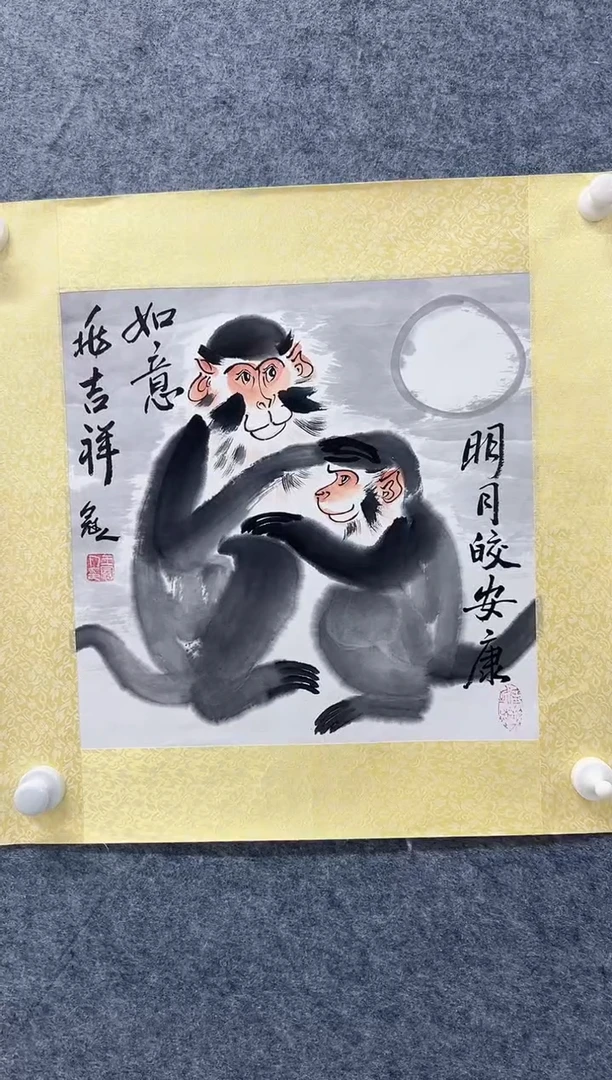 明月皎安康
如意
兆吉祥